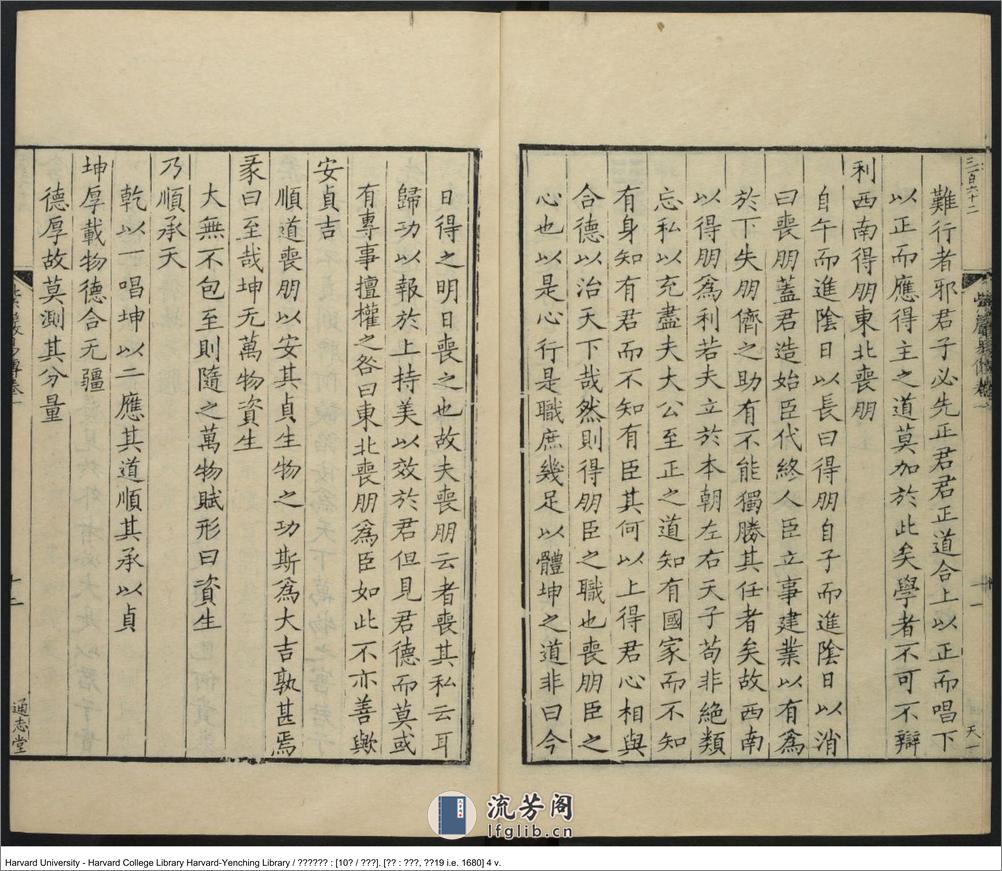 三百六十二
難行者邪君子必先正君君正道合上以正而唱下
以正而應得主之道莫加於此矣學者不可不辯
利西南得朋東北喪朋
自午而進陰日以長曰得朋自子而進陰日以消
曰喪朋蓋君造始臣代終人臣立事建業以有爲
於下失朋儕之助有不能獨勝其任者矣故西南
以得朋爲利若夫立於本朝左右天子苟非絶類
忘私以充盡夫大公至正之道知有國家而不知
有身知有君而不知有臣其何以上得君心相與
合德以治天下哉然則得朋臣之職也喪朋臣之
心也以是心行是職庶幾足以體坤之道非曰今
紫巖易傳卷一
十一
天一
日得之明日喪之也故夫喪朋云者喪其私云耳
歸功以報於上持美以效於君但見君德而莫或
有專事擅權之咎曰東北喪朋爲臣如此不亦善歟
安貞吉
順道喪朋以安其貞生物之功斯爲大吉孰甚焉
彖曰至哉坤元萬物資生
大無不包至則隨之萬物賦形曰資生
乃順承天
乾以一唱坤以二應其道順其承以貞
坤厚載物德合无疆
德厚故莫測其分量
紫巖易傳卷一
十二
通志堂
流芳阁
lfglib.cn
Harvard University - Harvard College Library Harvard-Yenching Library / ?????? : [10? / ???]. [?? : ???, ??19 i.e. 1680] 4 v.